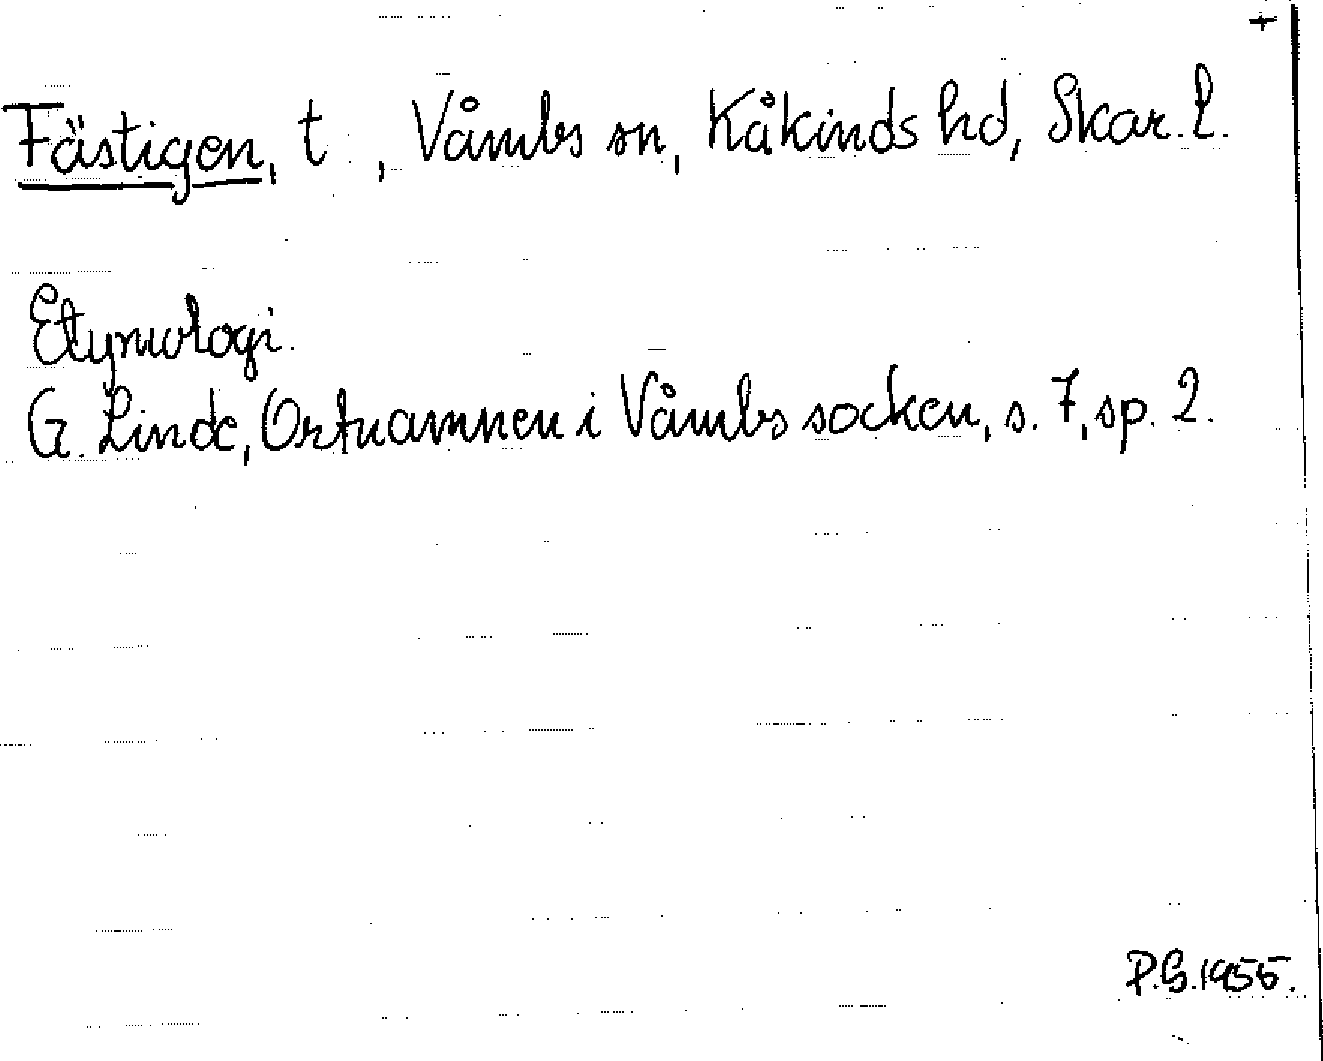 Fästigen, t., Våmbs sn, Kåkinds hd, Skar. l.
Etymologi.
G. Linde, Ortnamnen i Våmbs socken, s. 7, sp. 2.
P.G. 1955.